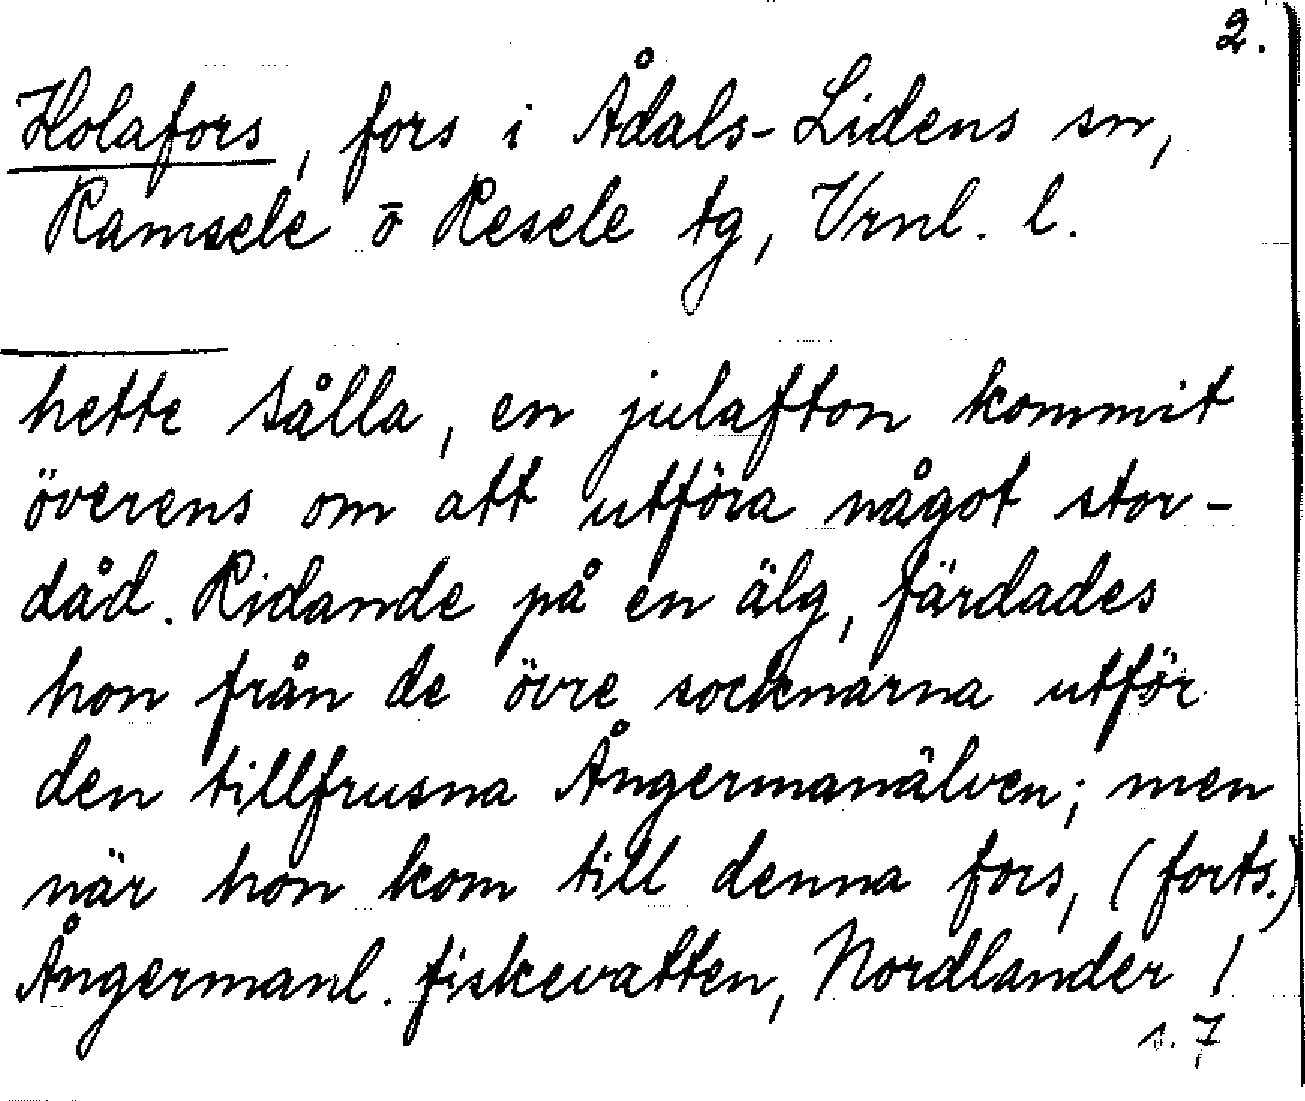 2.
Holafors, fors i Ådals-Lidens sn,
Ramsele o Resele tg, Vrnl. l.
hette Sålla, en julafton kommit
överens om att utföra något stor-
dåd. Ridande på en älg, färdades
hon från de övre socknarna utför
den tillfrusna Ångermanälven; men
när hon kom till denna fors, (forts.)
Ångermanl. fiskevatten, Nordlander 1
s. 7